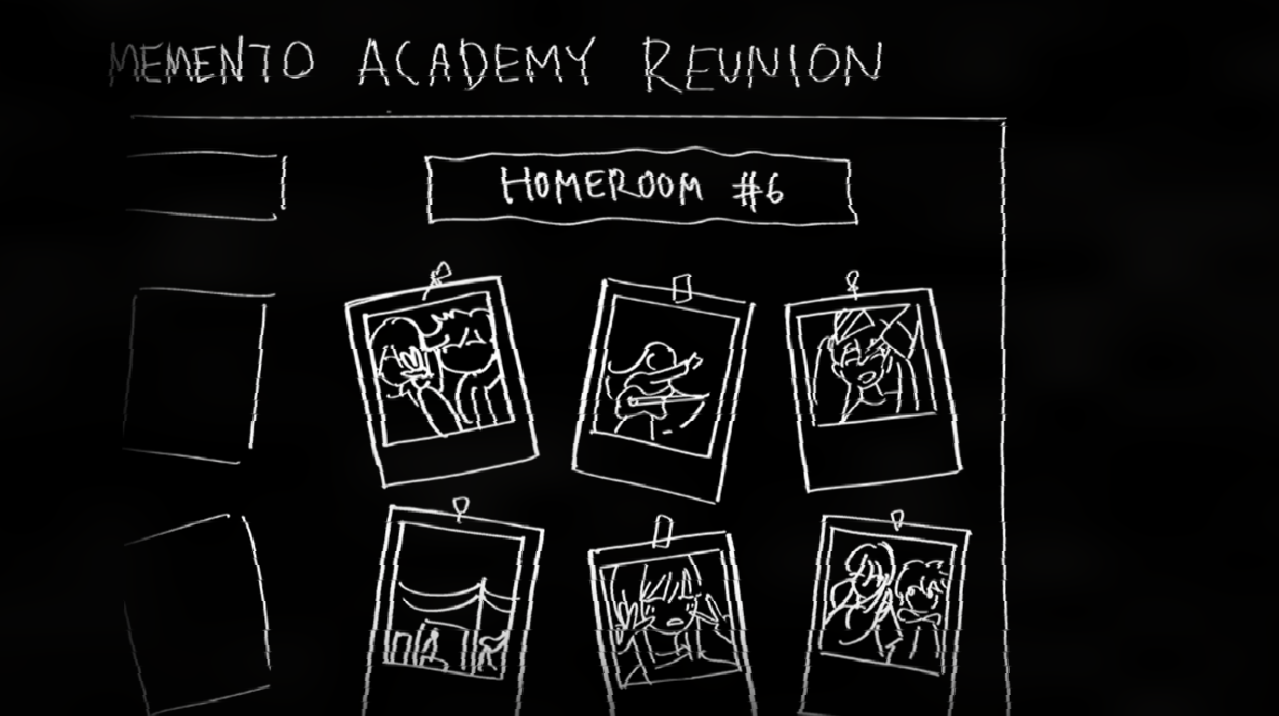 MEMENTO ACADEMY REUNION
HOMEROOM #6